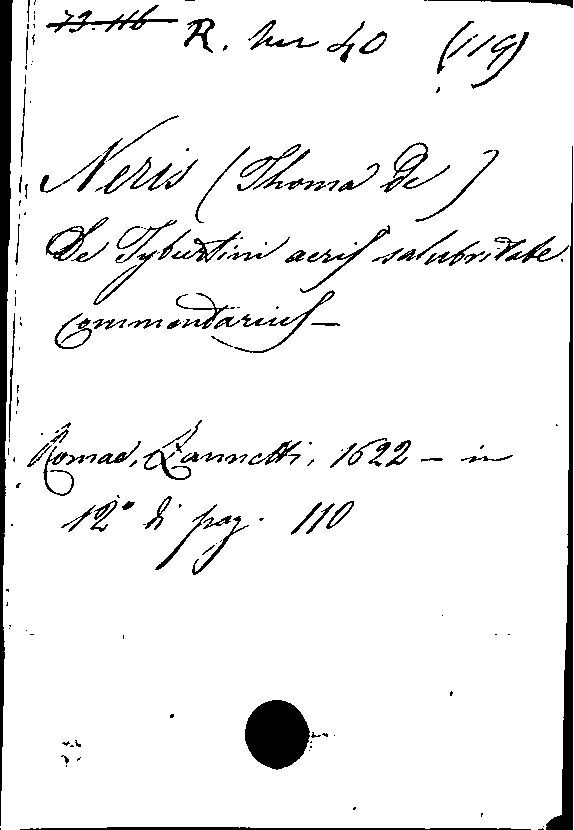 73.116 R. Mis 40 (119)
Neris (Thoma De)
De Tyburtini aeris salubritate
commentarius—
Romae, Zannetti, 1622 — in
12° di pag. 110